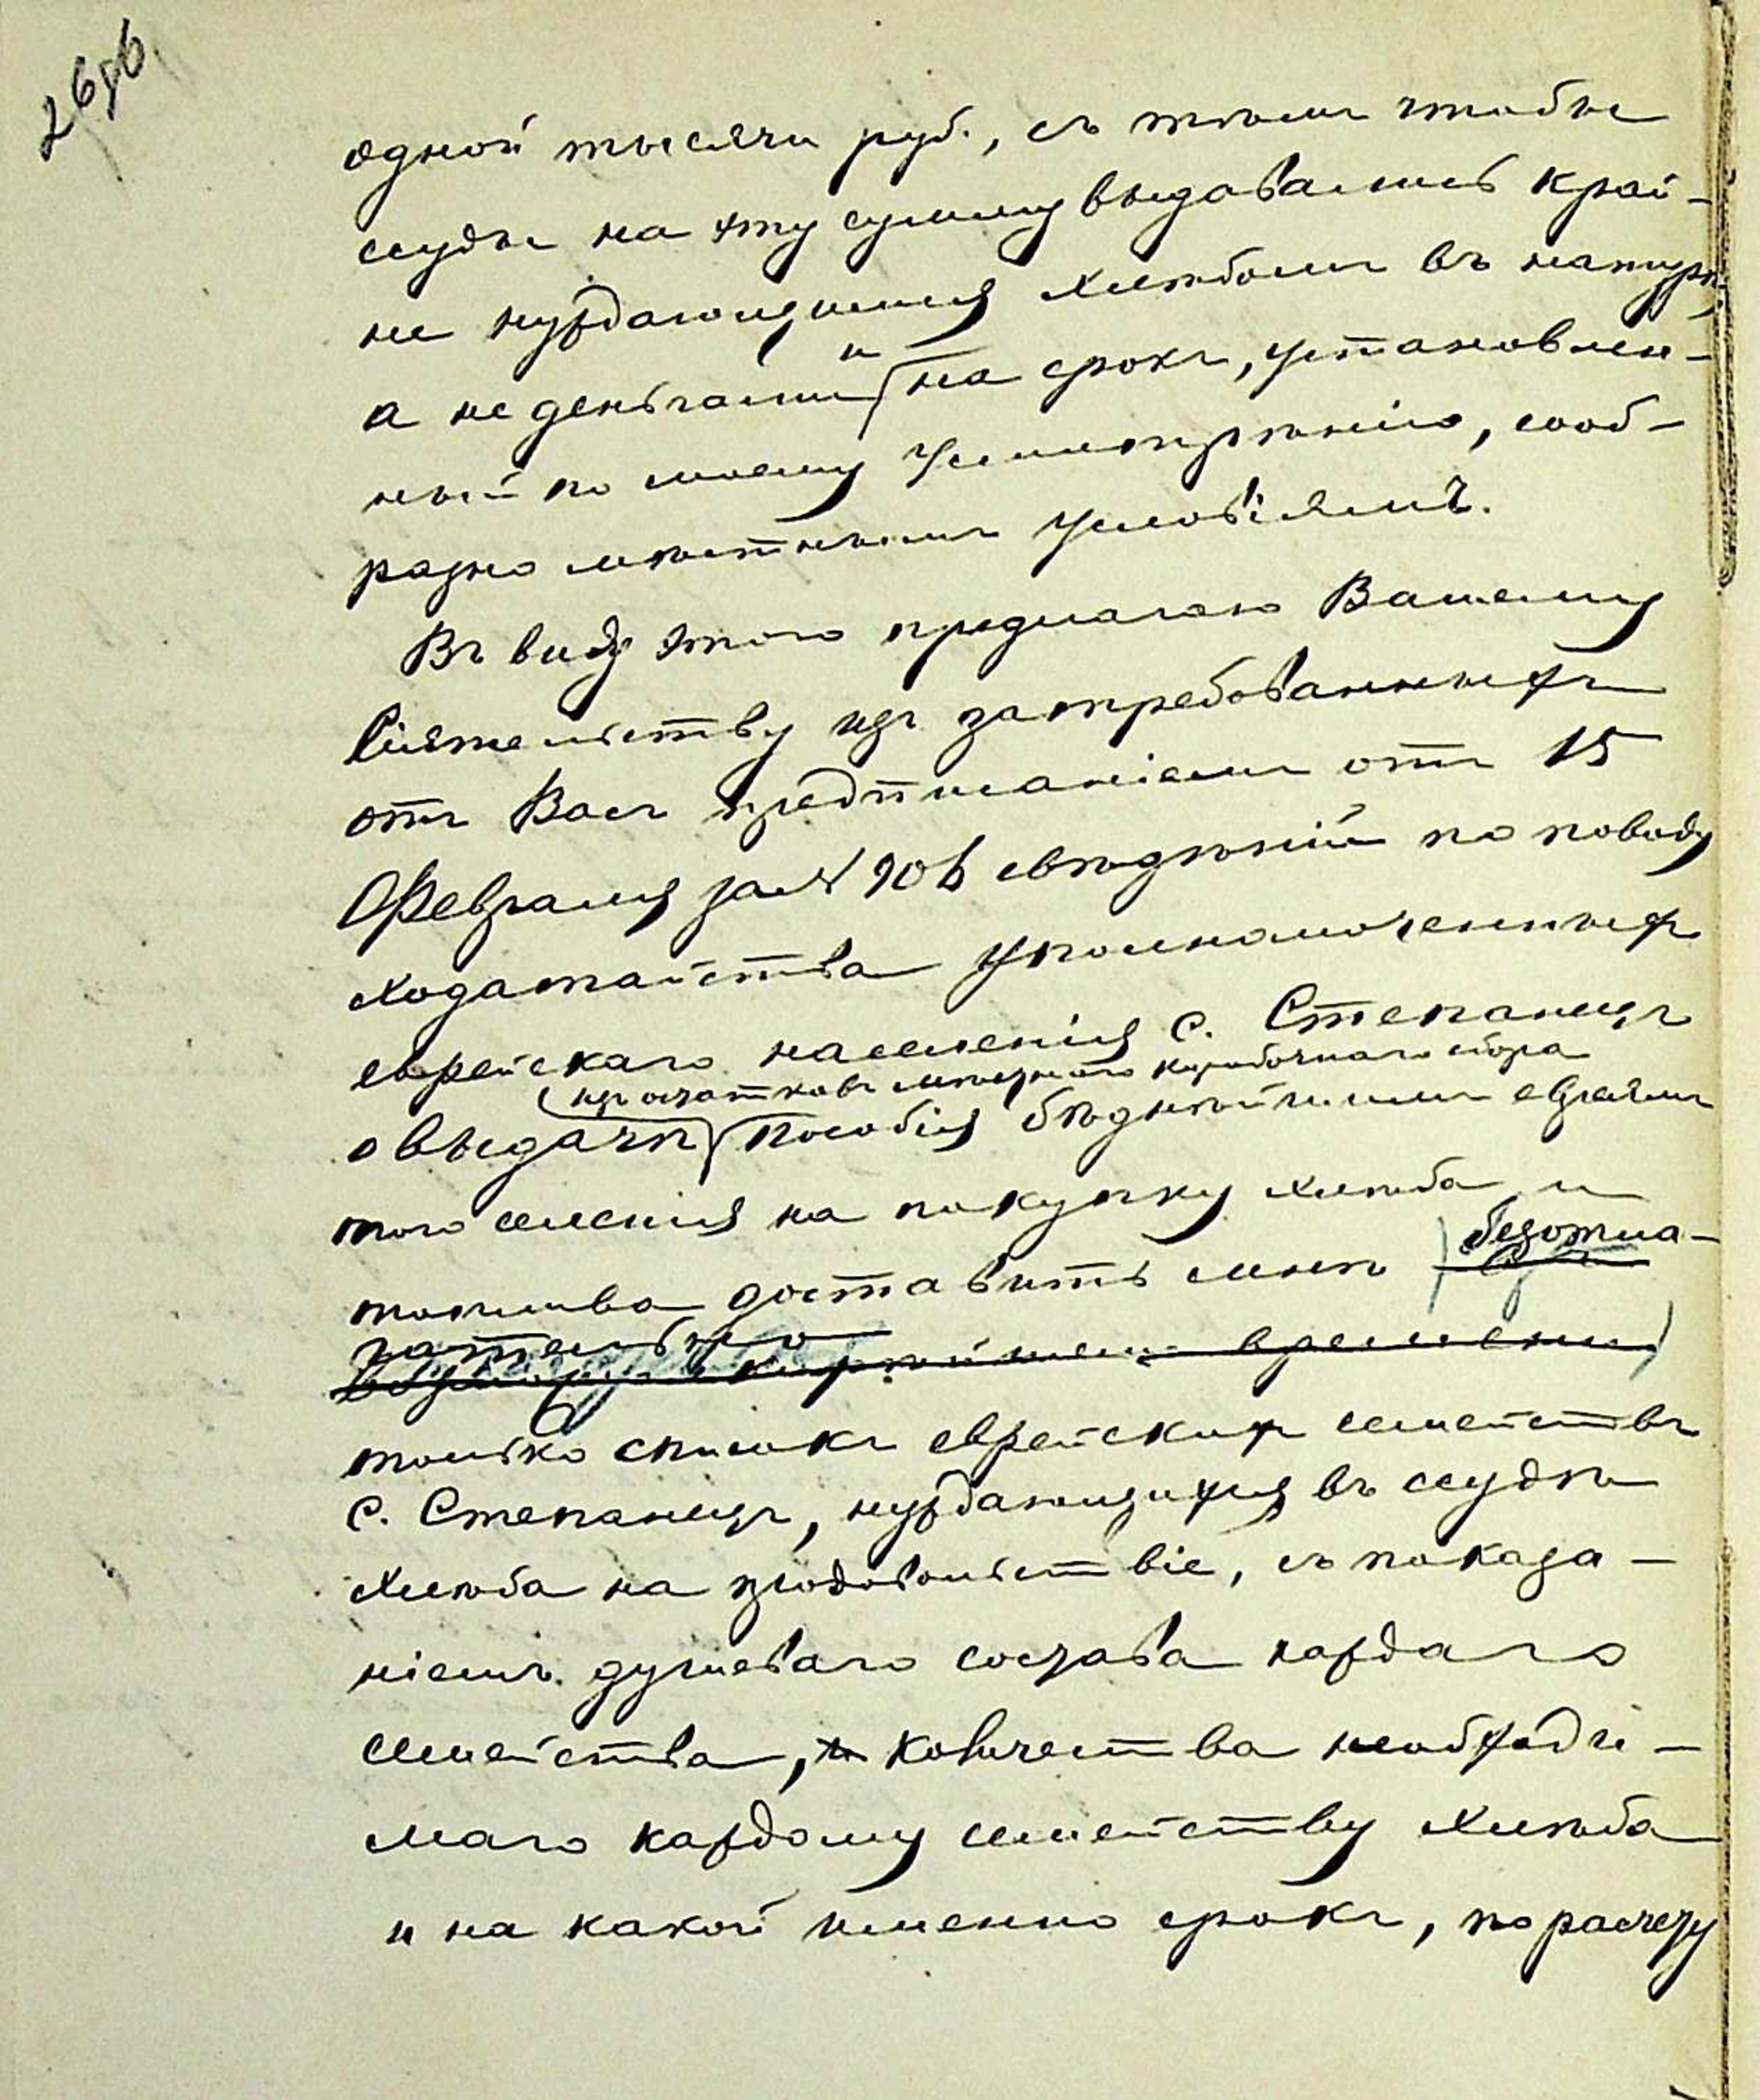 26об.
одной тысячи руб., съ тѣмъ чтобы
ссуды на эту сумму выдавались край-
не нуждающимся хлѣбомъ въ натурѣ,
а не деньгами и на срокъ, установлен-
ный по моему усмотрѣнію, сооб-
разно мѣстнымъ условіямъ.
Въ виду этого предлагаю Вашему
Сіятельству изъ затребованныхъ
отъ Васъ предписаніемъ отъ 15
Февраля за № 906 свѣдѣній по поводу
ходатайства уполномоченныхъ
еврейскаго населенія с. Степанецъ
изъ остатковъ мѣстнаго коробочнаго сбора
о выдачѣ пособія бѣднѣйшимъ евреямъ
того селенія на покупку хлѣба и
безотла-
топлива доставить мнѣ
гательно
скорѣйшемъ времени
только списокъ еврейскихъ семействъ
с. Степанецъ, нуждающихся въ ссудѣ
хлѣба на продовольствіе, съ показа-
ніемъ душеваго состава каждаго
семейства, количества необходи-
маго каждому семейству хлѣба
и на какой именно срокъ, по расчету